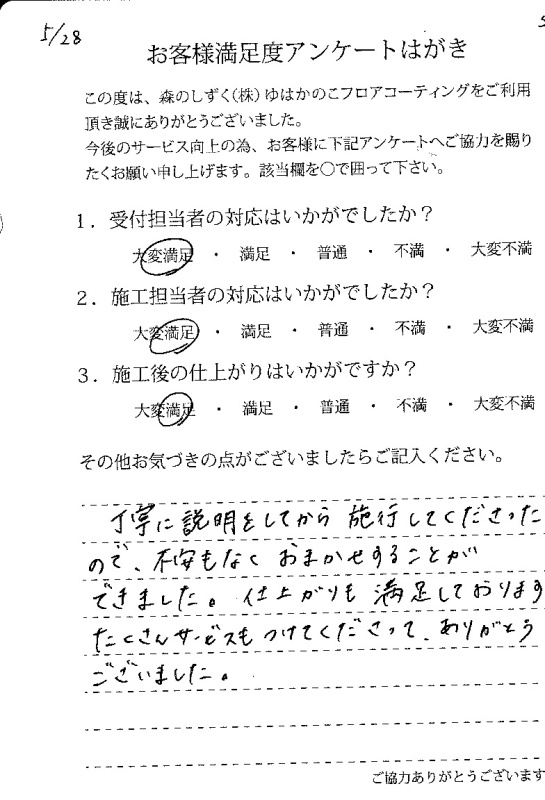 5/28
お客様満足度アンケートはがき
この度は、森のしずく(株)ゆはかのこフロアコーティングをご利用
頂き誠にありがとうございました。
今後のサービス向上の為、お客様に下記アンケートへご協力を賜り
たくお願い申し上げます。該当欄を○で囲って下さい。
1．受付担当者の対応はいかがでしたか？
大変満足 ・ 満足 ・ 普通 ・ 不満 ・ 大変不満
2．施工担当者の対応はいかがでしたか？
大変満足 ・ 満足 ・ 普通 ・ 不満 ・ 大変不満
3．施工後の仕上がりはいかがですか？
大変満足 ・ 満足 ・ 普通 ・ 不満 ・ 大変不満
その他お気づきの点がございましたらご記入ください。
丁寧に説明をしてから施行してくださった
ので、不安もなくおまかせすることが
できました。仕上がりも満足しております
たくさんサービスもつけてくださって、ありがとう
ございました。
ご協力ありがとうございます